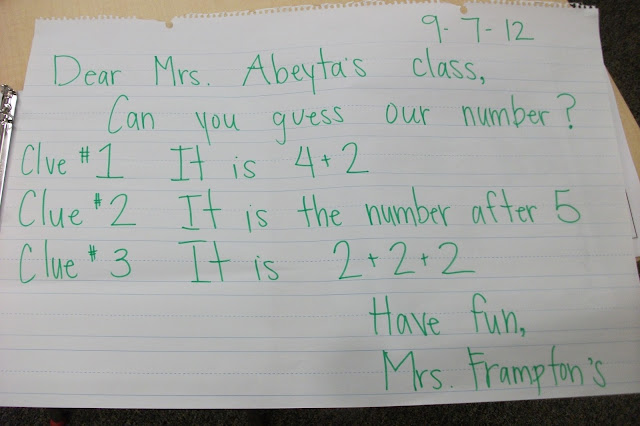 9-7-12
Dear Mrs. Abeyta's class,
Can you guess our number?
Clue #1 It is 4+2
Clue #2 It is the number after 5
Clue #3 It is 2+2+2
Have fun,
Mrs. Frampton's